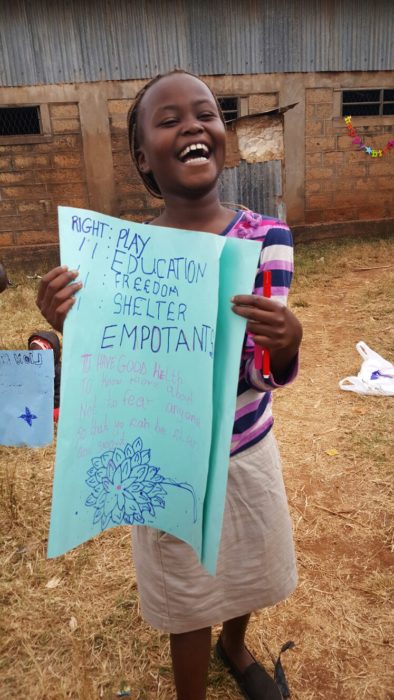 RIGHT: PLAY
" : EDUCATION
" : FREEDOM
" : SHELTER
EMPOTANTS
TO HAVE GOOD health
To know more about
Not to fear anyone
So that you can be